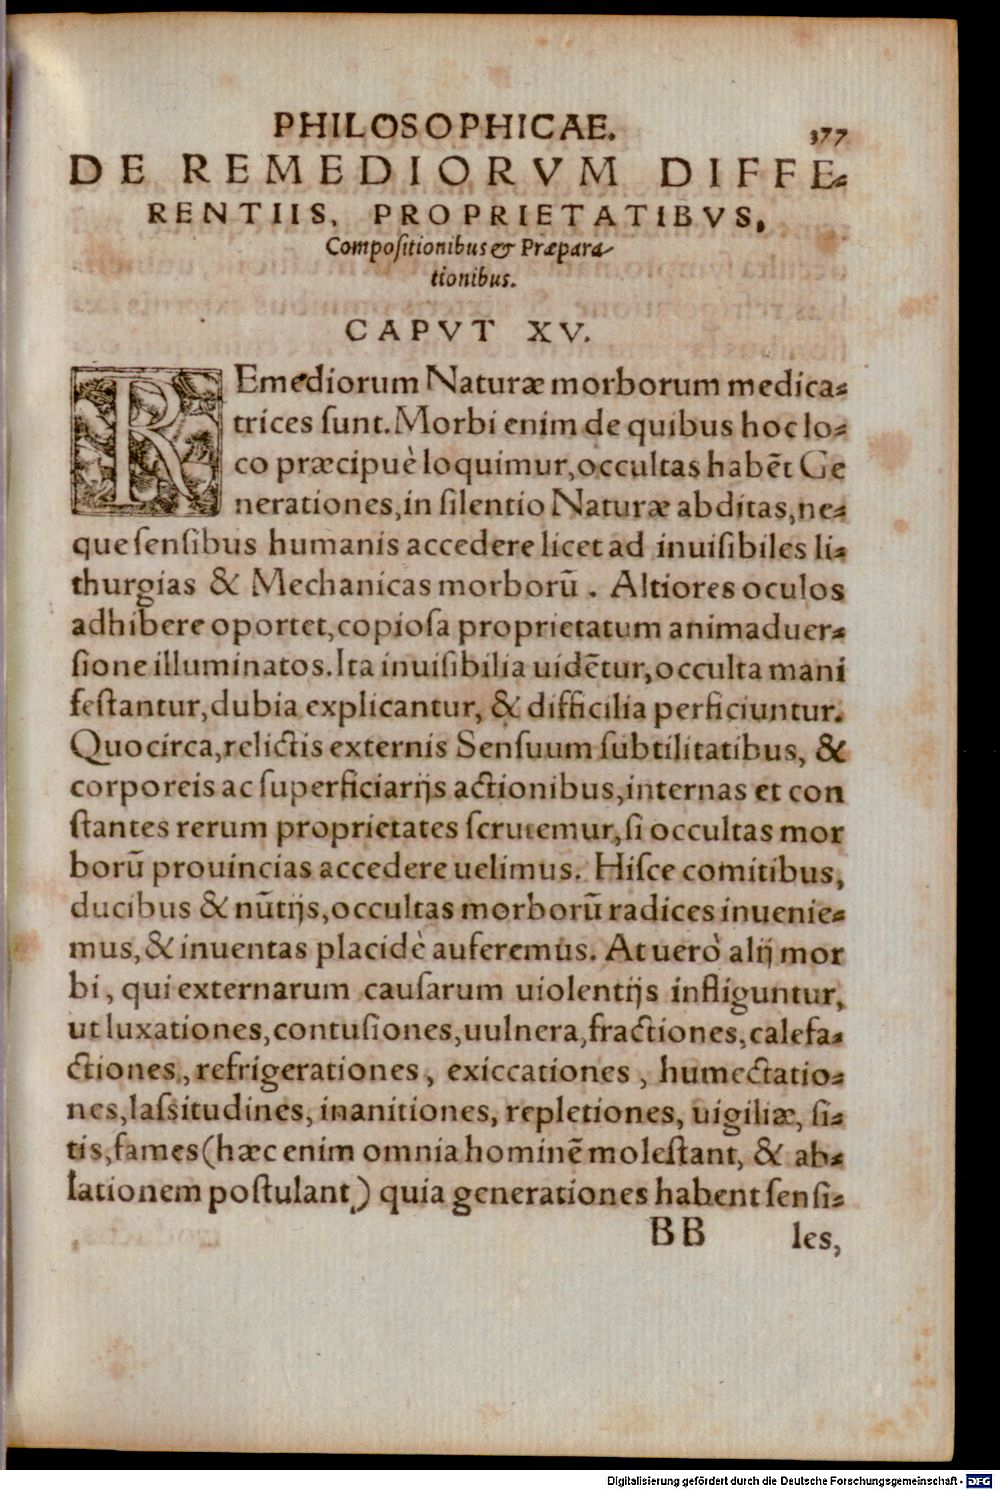 PHILOSOPHICAE. 377
DE REMEDIORVM DIFFE-
RENTIIS, PROPRIETATIBVS,
Compositionibus & Præpara-
tionibus.
CAPVT XV.
REmediorum Naturæ morborum medica-
trices ſunt. Morbi enim de quibus hoc lo-
co præcipuè loquimur, occultas habēt Ge
nerationes, in ſilentio Naturæ abditas, ne-
que ſenſibus humanis accedere licet ad inuiſibiles li-
thurgias & Mechanicas morborū. Altiores oculos
adhibere oportet, copioſa proprietatum animaduer-
ſione illuminatos. Ita inuiſibilia uidētur, occulta mani
feſtantur, dubia explicantur, & difficilia perficiuntur.
Quocirca, relictis externis Senſuum ſubtilitatibus, &
corporeis ac ſuperficiarijs actionibus, internas et con
ſtantes rerum proprietates ſcrutemur, ſi occultas mor
borū prouincias accedere uelimus. Hiſce comitibus,
ducibus & nūtijs, occultas morborū radices inuenie-
mus, & inuentas placidè auferemus. At uerò alij mor
bi, qui externarum cauſarum uiolentijs infliguntur,
ut luxationes, contuſiones, uulnera, fractiones, calefa-
ctiones, refrigerationes, exiccationes, humectatio-
nes, laſsitudines, inanitiones, repletiones, uigiliæ, ſi-
tis, fames (hæc enim omnia hominē moleſtant, & ab-
lationem poſtulant) quia generationes habent ſenſi-
BB les,
Digitalisierung gefördert durch die Deutsche Forschungsgemeinschaft - DFG